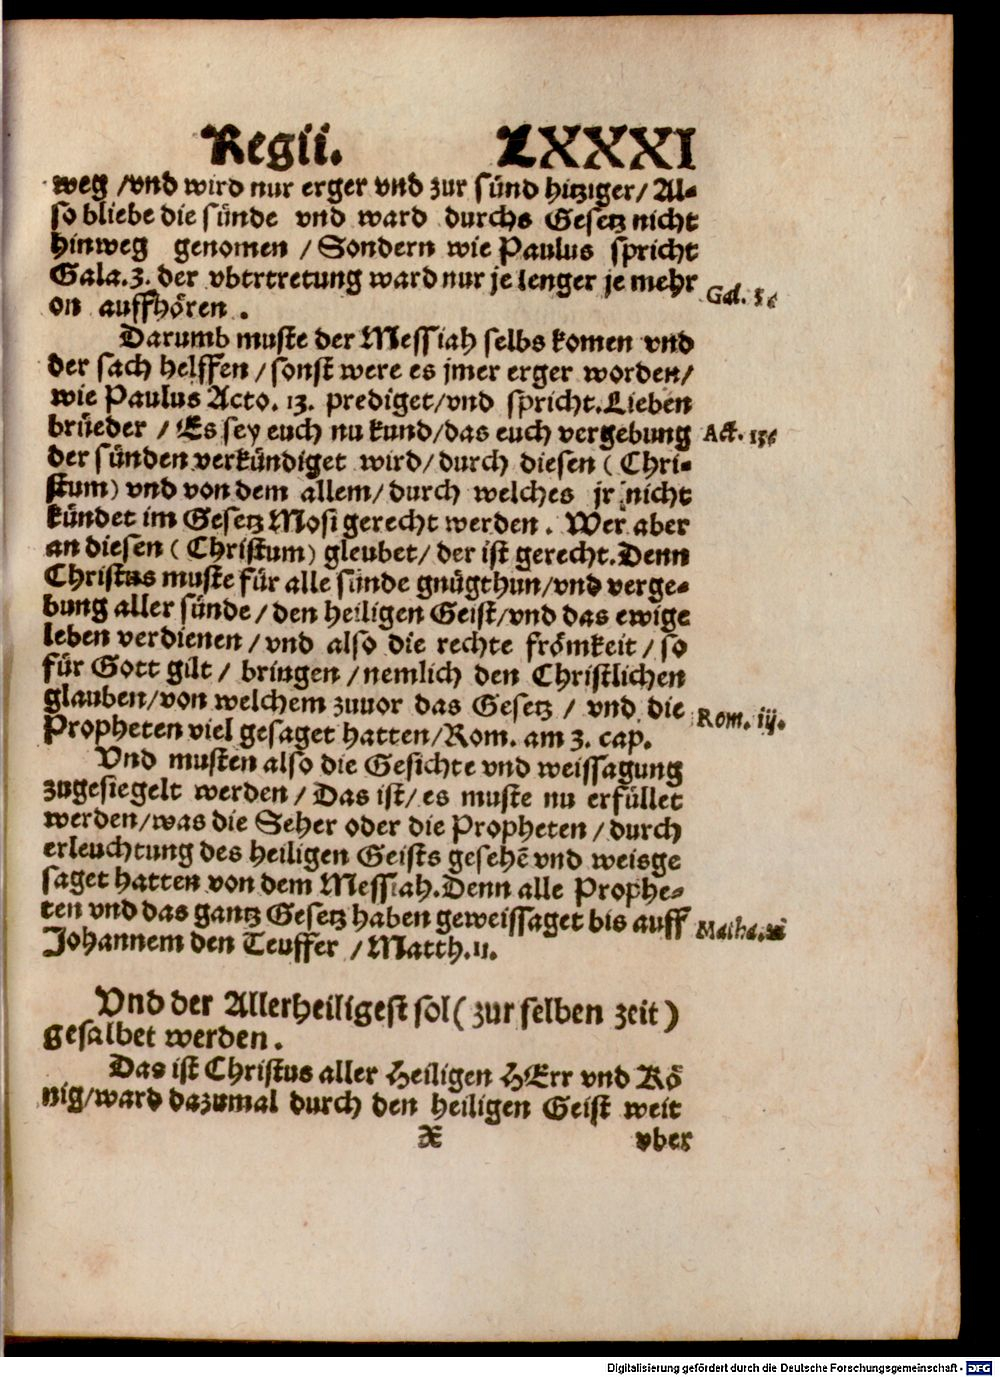 Regii. LXXXI
weg /vnd wird nur erger vnd zur sünd hitziger/ Al-
so bliebe die sünde vnd ward durchs Gesetz nicht
hinweg genomen / Sondern wie Paulus spricht
Gala.3. der vbtrtretung ward nur je lenger je mehr
on auffhören .
Gal.
Darumb muste der Messiah selbs komen vnd
der sach helffen / sonst were es jmer erger worden/
wie Paulus Acto. 13. prediget/vnd spricht.Lieben
brüeder / Es sey euch nu kund/das euch vergebung
Act. 13.
der sünden verkündiget wird/durch diesen ( Chri-
stum) vnd von dem allem/durch welches jr nicht
kündet im Gesetz Mosi gerecht werden . Wer aber
an diesen ( Christum) gleubet/ der ist gerecht.Denn
Christus muste für alle sünde gnügthun/vnd verge-
bung aller sünde/den heiligen Geist/vnd das ewige
leben verdienen /vnd also die rechte frömkeit / so
für Gott gilt / bringen /nemlich den Christlichen
glauben/von welchem zuuor das Gesetz / vnd die
Propheten viel gesaget hatten/Rom. am 3. cap.
Rom. iij.
Vnd musten also die Gesichte vnd weissagung
zugesiegelt werden / Das ist/ es muste nu erfüllet
werden/was die Seher oder die Propheten / durch
erleuchtung des heiligen Geists gesehē vnd weisge
saget hatten von dem Messiah.Denn alle Prophe-
ten vnd das gantz Gesetz haben geweissaget bis auff
Johannem den Teuffer /Matth.11.
Vnd der Allerheiligest sol ( zur selben zeit )
gesalbet werden .
Das ist Christus aller Heiligen HErr vnd Kö
nig/ward dazumal durch den heiligen Geist weit
X vber
Digitalisierung gefördert durch die Deutsche Forschungsgemeinschaft - DFG